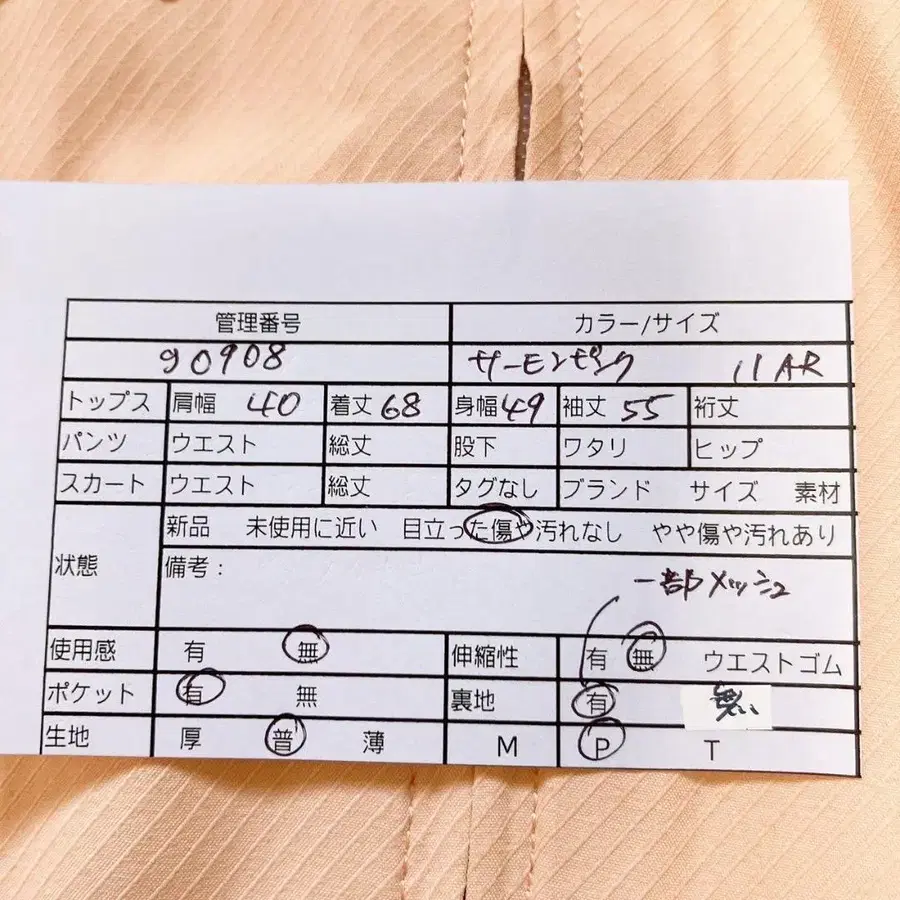 管理番号 カラー/サイズ
90908 サーモンピンク 11AR
トップス 肩幅 40 着丈 68 身幅 49 袖丈 55 裄丈
パンツ ウエスト 総丈 股下 ワタリ ヒップ
スカート ウエスト 総丈 タグなし ブランド サイズ 素材
状態 新品 未使用に近い 目立った傷や汚れなし やや傷や汚れあり
備考：
一部メッシュ
使用感 有 無 伸縮性 有 無 ウエストゴム
ポケット 有 無 裏地 有 無い
生地 厚 普 薄 M P T